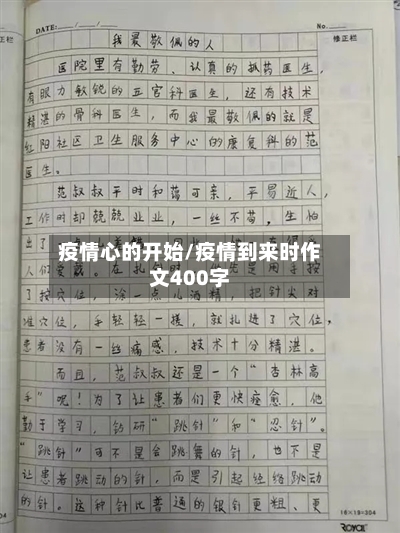 DATE: / /
No.
修正栏
修正栏
我最敬佩的人
医院里有勤劳、认真的抓药医生，
有眼力敏锐的五官科医生，还有技术
精湛的骨科医生，而我最敬佩的就是
红阳社区卫生服务中心的康复科的范
医生。
范叔叔平时和蔼可亲，平易近人，
工作时却兢兢业业，一丝不苟，生怕
出了
疫情心的开始/疫情到来时作
文400字
人们
是用手按
了按穴位，涂一点儿酒精，把针尖对
准穴位，手轻轻一搓，就扎进了穴位，
患者没有一丝痛感，技术十分精湛。
而且，范叔叔还是一个“杏林高
手”呢！为了让患者们更快痊愈，他
勤于学习，钻研“跳针”和“忍针”。
“跳针”可不是会跳舞的针，也不是
让患者跳动的针，而是引起经络跳动
的针。这种针比普通的银针更粗、更
16×19=304
ROYAL